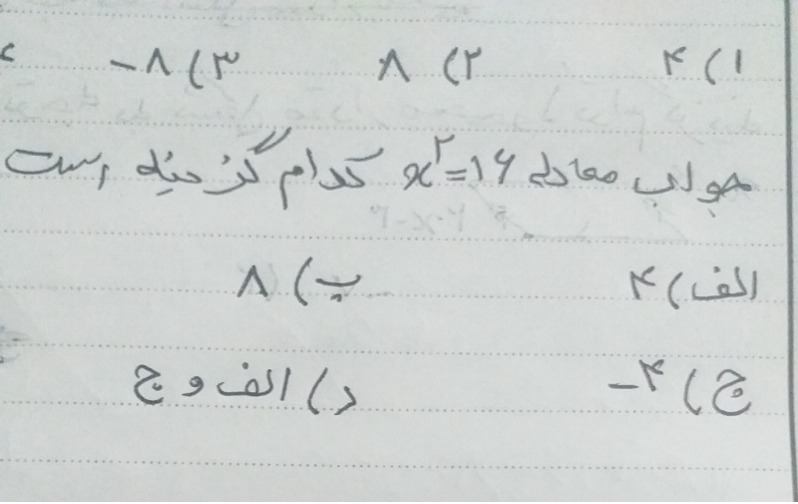 ۱) ۴ ۲) ۸ ۳) ۸-
جواب معادله x²=۱۶ کدام گزینه است
الف) ۴ ب) ۸
ج) ۴- د) الف و ج